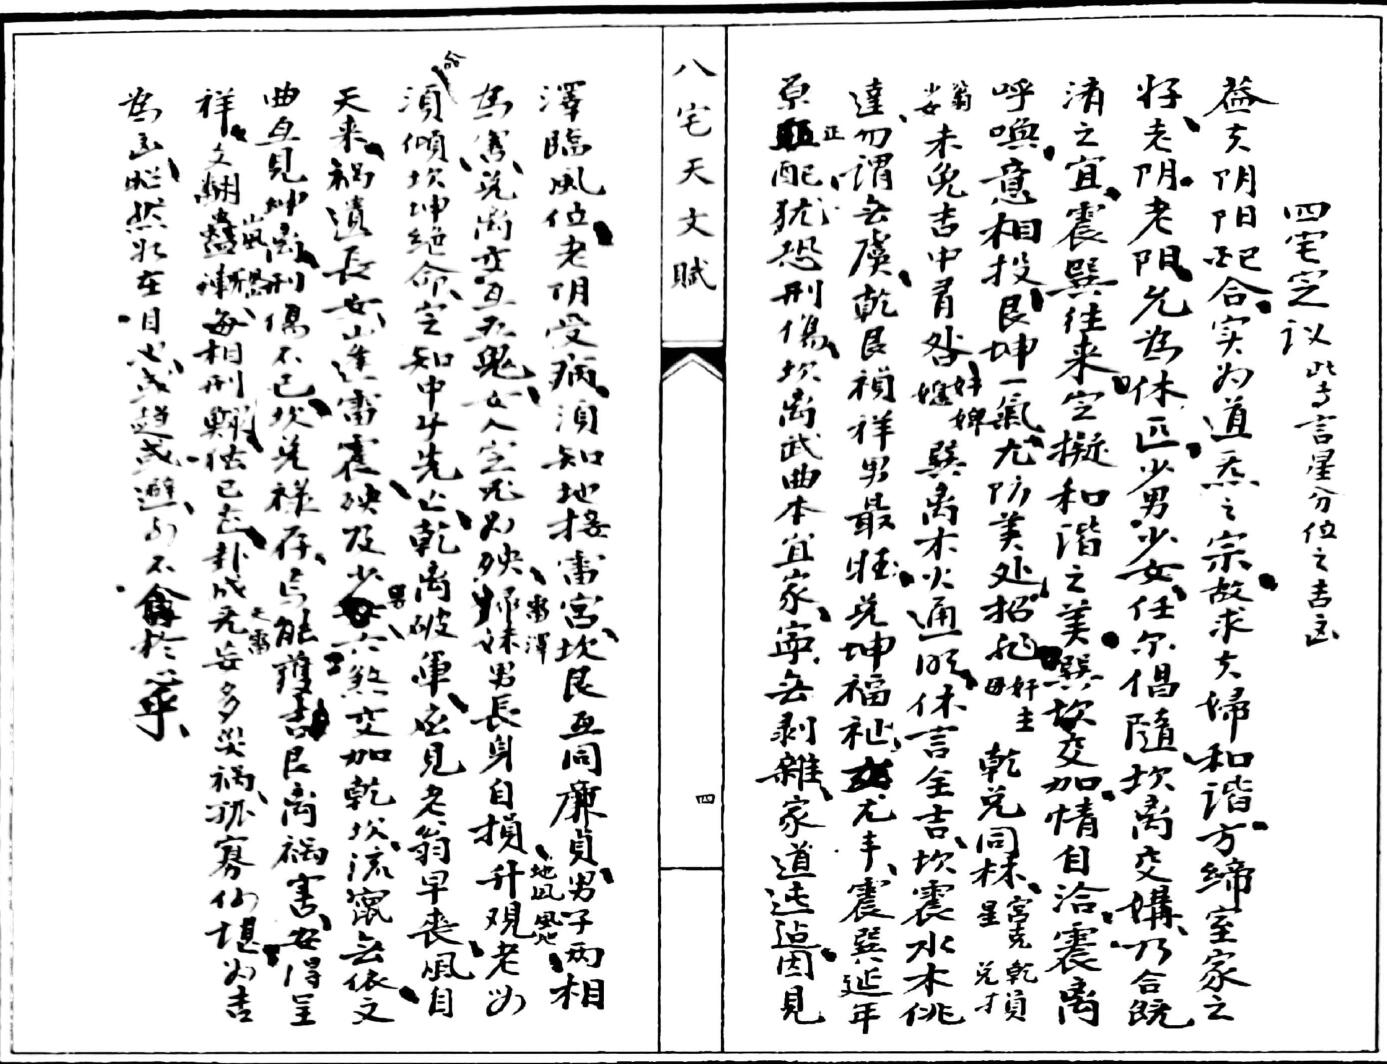 四宅定议 此专言星分位之吉凶
盖夫阴阳配合实为道炁之宗故求夫婦和谐方缔室家之
好老阴老阳允为休匹少男少女任尔倡随坎离交媾乃合既
濟之宜震巽往来定擬和谐之美巽坎交加情自洽震离
呼喚意相投艮坤一氣尤防美处招 母奸主 乾兑同林 宮克乾損 星 兑才
翁 少女 未免吉中有咎 奸婢 巽离木火通明休言全吉坎震水木佻
達勿谓无虞乾艮禎祥男最旺兑坤福祉女尤丰震巽延年
原正配犹恐刑傷坎离武曲本宜家寧无剥雜家道迍邅因見
八宅天文賦
四
澤臨風位老阴受病須知地接雷宮坎艮互同廉貞男子两相
為害兑离交互五鬼女人定然为殃歸妹 雷澤 男長身自損升观 地风 风地 老必
須傾坎坤绝命 合 定知中子先亡乾离破軍应見老翁早喪風自
天来禍遺長女山逢雷震殃及少男六煞交加乾坎流寓无依文
曲互見坤离刑傷不已坎兑禄存焉能獲吉艮离禍害安得呈
祥文翻蠱 山風 卦每相刑 位已去卦成无妄 天雷 多災禍孤寡何堪为吉
為凶昭然が在目也或趋或避 不